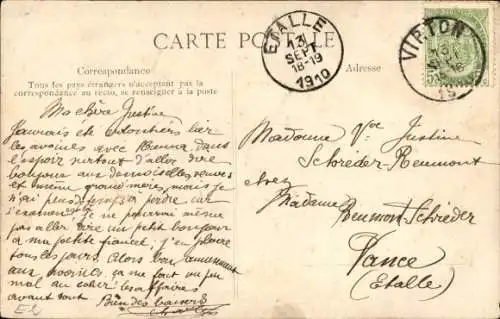 CARTE POSTALE
Correspondance
Adresse
Tous les pays étrangers n'acceptent pas la
correspondance au recto, se renseigner à la poste
ETALLE
13
SEPT
18-19
1910
VIRTON
13
Ma chère Justine
J'aurais été volontiers lier
les avoines avec dans
l'espoir surtout d'aller dire
bonjour aux demoiselles veuves
et grand'mères, mais je
n'ai pas de temps à perdre car
Je ne pourrai même
pas aller dire un petit bonjour
à ma petite fiancée, j'en pleure
tous les jours. Alors bon amusement
aux avoines, ça me fait un peu
mal au les affaires
avant tout.
Bien des baisers
Madame Vve Justine
Schréder-Reumont
chez
Madame
Reumont-Schréder
Vance
(Etalle)